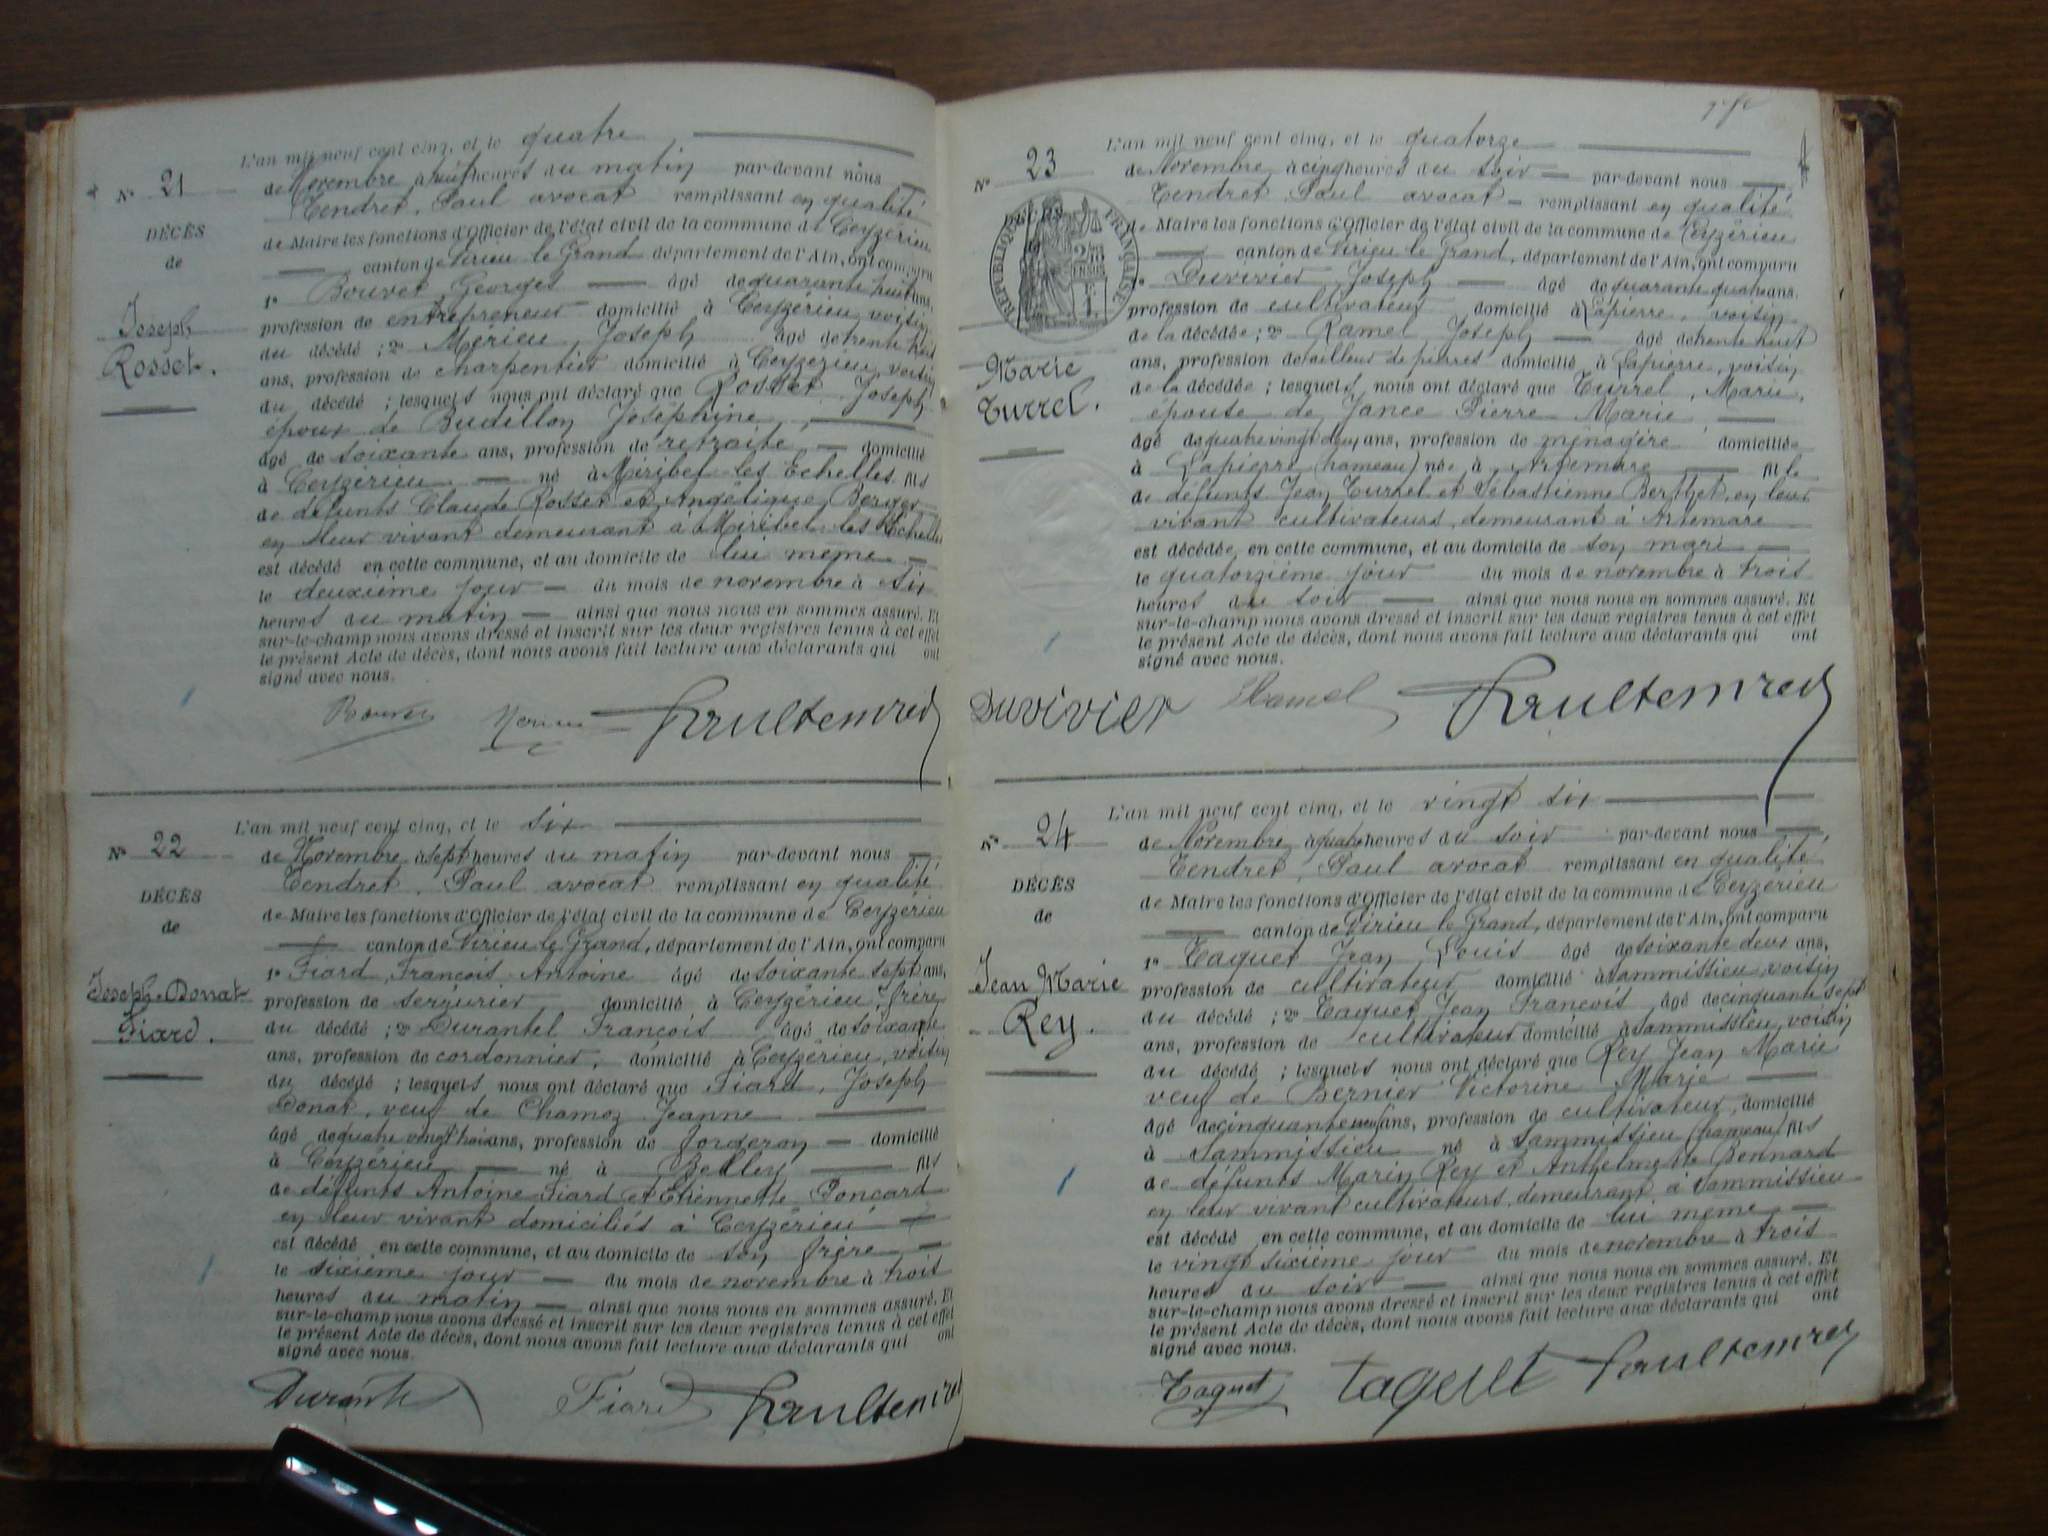 L'an mil neuf cent cinq, et le quatre
N° 21
de Novembre à huit heures du matin par-devant nous
Tendret, Paul avocat remplissant en qualité
DÉCÈS
de Maire les fonctions d'Officier de l'état civil de la commune de Ceyzérieu
de
canton de Virieu le Grand département de l'Ain, ont comparu
1° Bouvet Georges âgé de quarante huit ans,
Joseph
profession de entrepreneur domicilié à Ceyzérieu, voisin
Rosset.
du décédé ; 2° Mérieu, Joseph âgé de trente huit
ans, profession de charpentier domicilié à Ceyzérieu, voisin
du décédé ; lesquels nous ont déclaré que Rosset Joseph
époux de Budillon Joséphine,
âgé de soixante ans, profession de retraité domicilié
à Ceyzérieu né à Miribel les Echelles fils
de défunts Claude Rosset et Angélique Berger
en leur vivant demeurant à Miribel les Echelles
est décédé en cette commune, et au domicile de lui même
le deuxième jour du mois de novembre à six
heures du matin ainsi que nous nous en sommes assuré. Et
sur-le-champ nous avons dressé et inscrit sur les deux registres tenus à cet effet
le présent Acte de décès, dont nous avons fait lecture aux déclarants qui ont
signé avec nous.
L'an mil neuf cent cinq, et le six
N° 22
de Novembre à sept heures du matin par-devant nous
Tendret, Paul avocat remplissant en qualité
DÉCÈS
de Maire les fonctions d'Officier de l'état civil de la commune de Ceyzérieu
de
canton de Virieu le Grand, département de l'Ain, ont comparu
1° Fiard, François Antoine âgé de soixante sept ans,
Joseph-Donat
profession de serrurier domicilié à Ceyzérieu, frère
Fiard.
du décédé ; 2° Durantel François âgé de soixante
ans, profession de cordonnier, domicilié à Ceyzérieu, voisin
du décédé ; lesquels nous ont déclaré que Fiard, Joseph
Donat, veuf de Chamoz Jeanne
âgé de quatre vingt trois ans, profession de forgeron domicilié
à Ceyzérieu né à Belley fils
de défunts Antoine Fiard et Etiennette Poncard
en leur vivant domiciliés à Ceyzérieu
est décédé en cette commune, et au domicile de son frère
le sixième jour du mois de novembre à trois
heures du matin ainsi que nous nous en sommes assuré. Et
sur-le-champ nous avons dressé et inscrit sur les deux registres tenus à cet effet
le présent Acte de décès, dont nous avons fait lecture aux déclarants qui ont
signé avec nous.
Fiard
L'an mil neuf cent cinq, et le quatorze
N° 23
de Novembre à cinq heures du soir par-devant nous
Tendret, Paul avocat remplissant en qualité
de Maire les fonctions d'Officier de l'état civil de la commune de Ceyzérieu
RÉPUBLIQUE FRANÇAISE
canton de Virieu le Grand, département de l'Ain, ont comparu
1° Duvivier Joseph âgé de quarante quatre ans,
profession de cultivateur domicilié à Lapierre, voisin
de la décédée ; 2° Ramel Joseph âgé de trente huit
Marie
ans, profession de tailleur de pierres domicilié à Lapierre, voisin
Turrel.
de la décédée ; lesquels nous ont déclaré que Turrel, Marie,
épouse de Jance Pierre Marie
âgé de quatre vingt deux ans, profession de ménagère domiciliée
à Lapierre (hameau) née à Artemare fille
de défunts Jean Turrel et Sébastienne Berthet, en leur
vivant cultivateurs demeurant à Artemare
est décédée en cette commune, et au domicile de son mari
le quatorzième jour du mois de novembre à trois
heures du soir ainsi que nous nous en sommes assuré. Et
sur-le-champ nous avons dressé et inscrit sur les deux registres tenus à cet effet
le présent Acte de décès, dont nous avons fait lecture aux déclarants qui ont
signé avec nous.
Duvivier Ramel
L'an mil neuf cent cinq, et le vingt six
N° 24
de Novembre à quatre heures du soir par-devant nous
Tendret, Paul avocat remplissant en qualité
DÉCÈS
de Maire les fonctions d'Officier de l'état civil de la commune de Ceyzérieu
de
canton de Virieu le Grand, département de l'Ain, ont comparu
1° Taquet Jean Louis âgé de soixante deux ans,
Jean Marie
profession de cultivateur domicilié à Sammissieu, voisin
Rey.
du décédé ; 2° Taquet Jean François, âgé de cinquante sept
ans, profession de cultivateur domicilié à Sammissieu, voisin
du décédé ; lesquels nous ont déclaré que Rey Jean Marie
veuf de Bernier Victorine Marie
âgé de cinquante ans, profession de cultivateur, domicilié
à Sammissieu né à Sammissieu (hameau) fils
de défunts Marin Rey et Anthelmette Bonnard
en leur vivant cultivateurs, demeurant à Sammissieu
est décédé en cette commune, et au domicile de lui même
le vingt sixième jour du mois de novembre à trois
heures du soir ainsi que nous nous en sommes assuré. Et
sur-le-champ nous avons dressé et inscrit sur les deux registres tenus à cet effet
le présent Acte de décès, dont nous avons fait lecture aux déclarants qui ont
signé avec nous.
Taquet